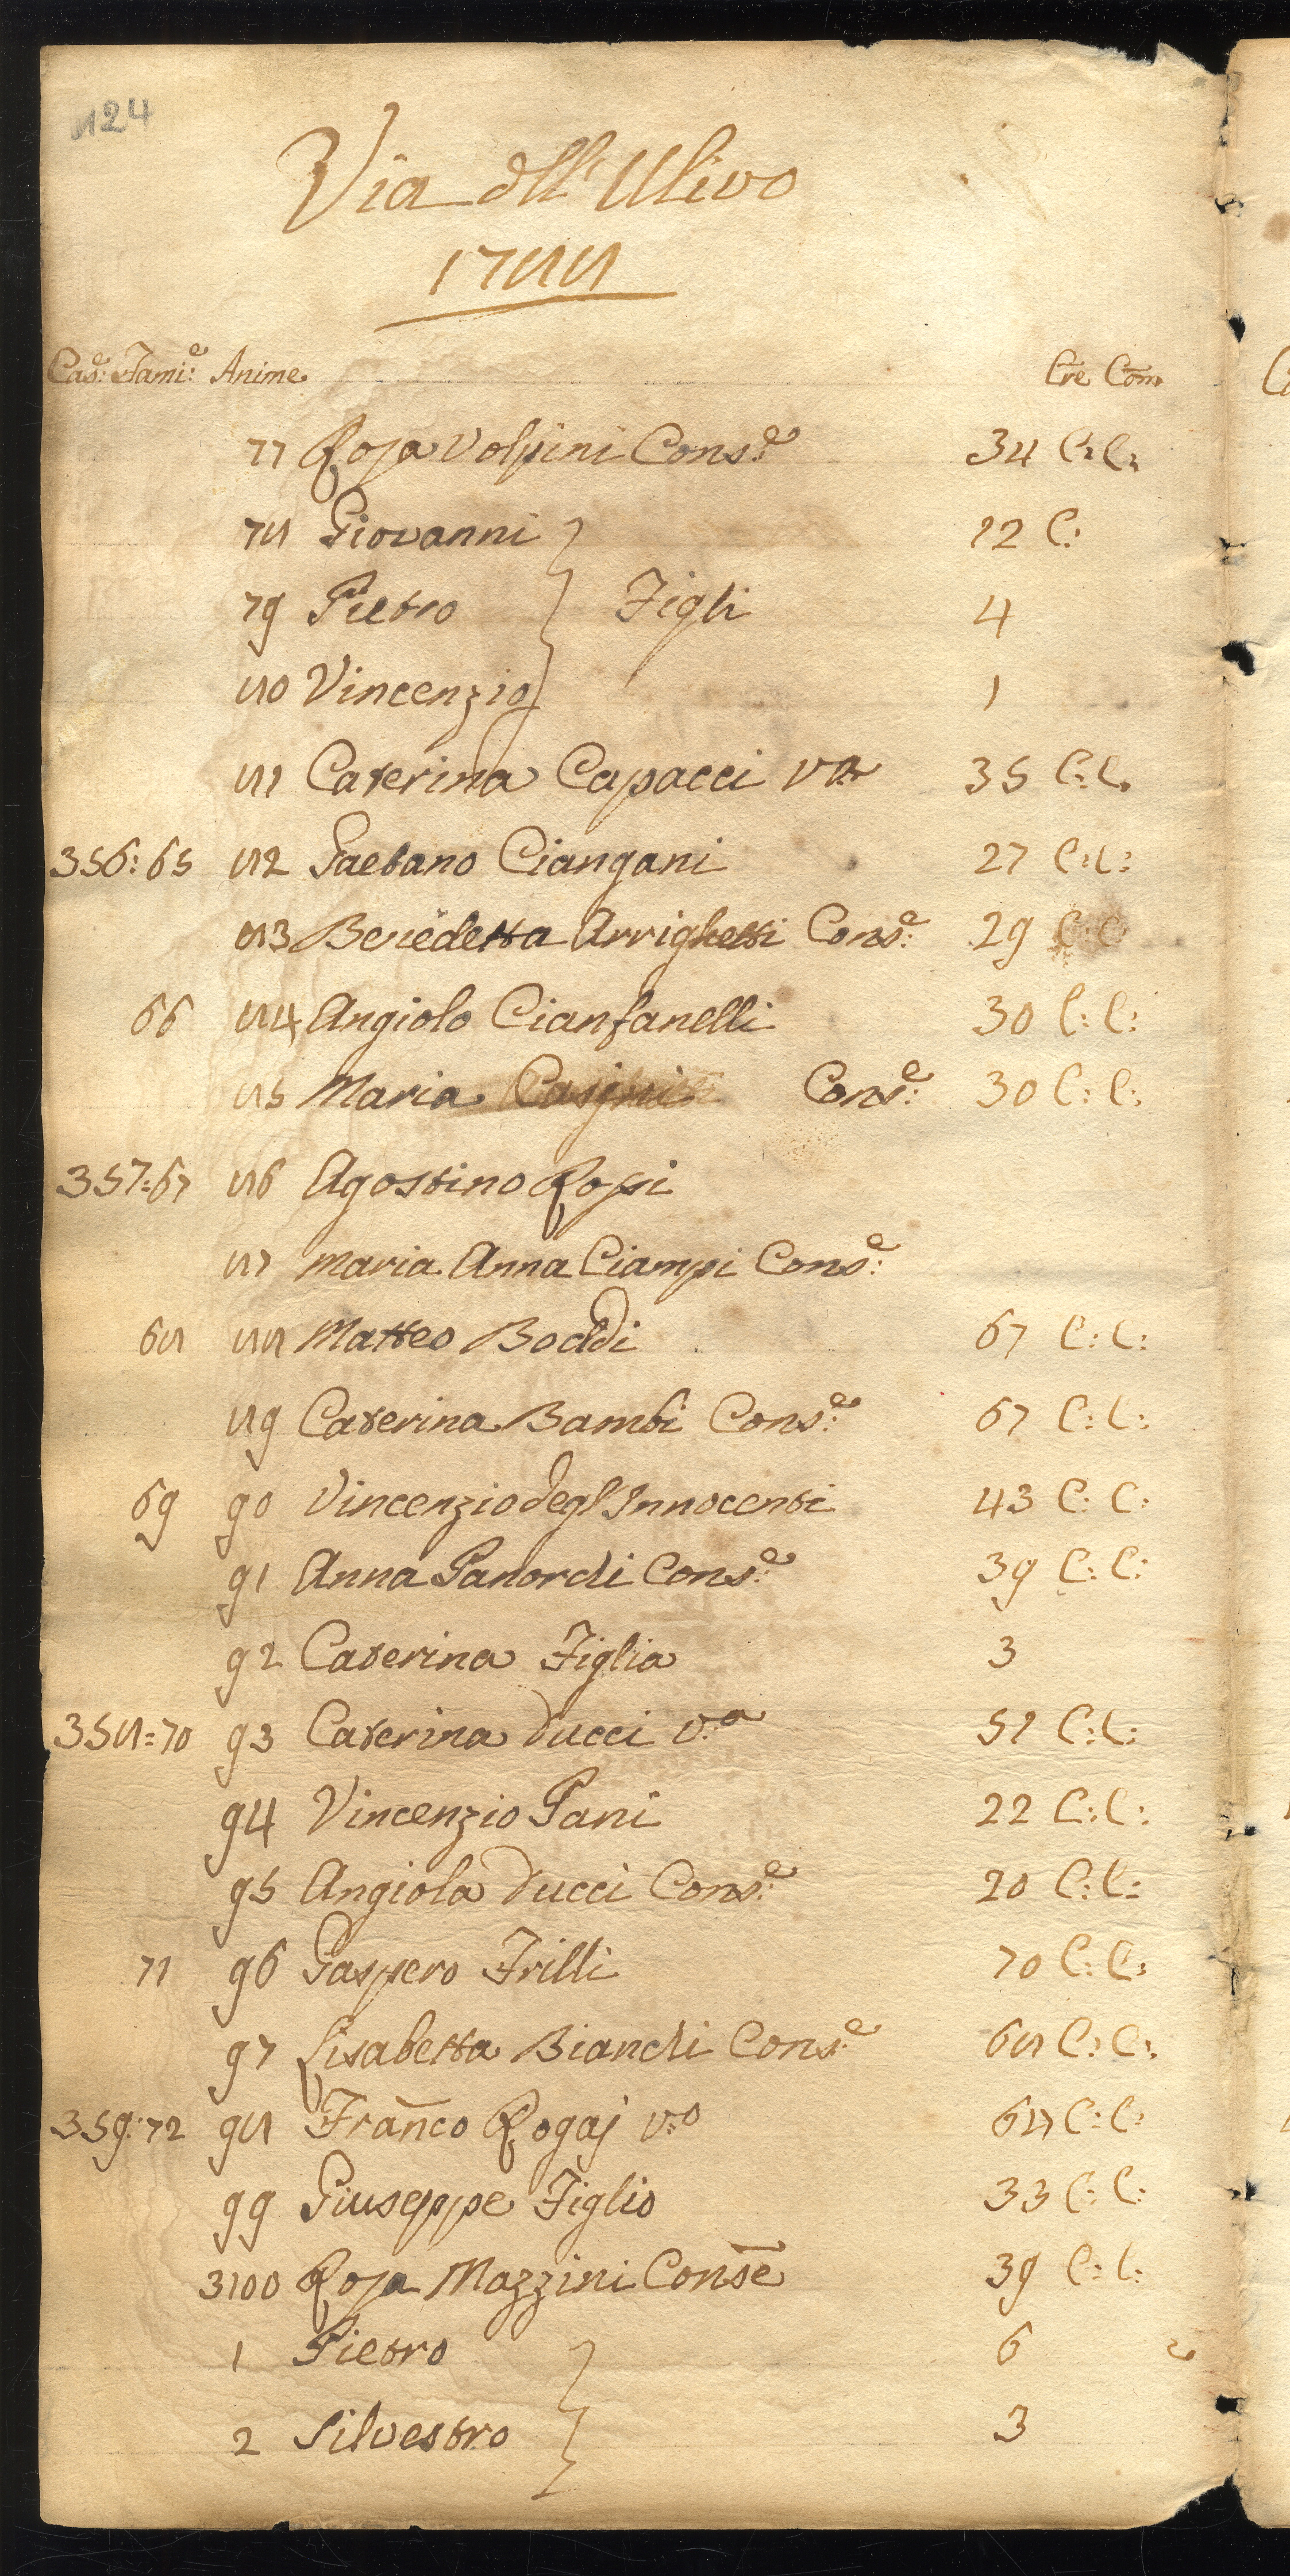 124
Via dll'Ulivo
1788
Cas:e Fami:e Anime Cre Com
77 Rosa Volpini Cons:e 34 C:C:
78 Giovanni 12 C:
79 Pietro Figli 4
80 Vincenzio 1
81 Caterina Capacci va 35 C:C.
356: 65 82 Gaetano Ciangani 27 C:C:
83 Benedetta Arrighetti Cons:e 29 C:C
66 84 Angiolo Cianfanelli 30 C:C:
85 Maria Cons:e 30 C:C:
357=67 86 Agostino Rossi
87 Maria Anna Ciampi Cons:e
68 88 Matteo Boddi 67 C:C:
89 Caterina Bambi Cons:e 67 C:C:
69 90 Vincenzio degl'Innocenti 43 C:C:
91 Anna Panordi Cons:e 39 C:C:
92 Caterina Figlia 3
358=70 93 Caterina Ducci v:a 51 C:C:
94 Vincenzio Pani 22 C:C:
95 Angiola Ducci Cons:e 20 C:C:
71 96 Gaspero Frilli 70 C:C:
97 Lisabetta Bianchi Cons:e 68 C:C:
359:72 98 Franco Rogaj v:o 68 C:C:
99 Giuseppe Figlio 33 C:C:
3100 Rosa Mazzini Conse 39 C:C:
1 Pietro 6
2 Silvestro 3